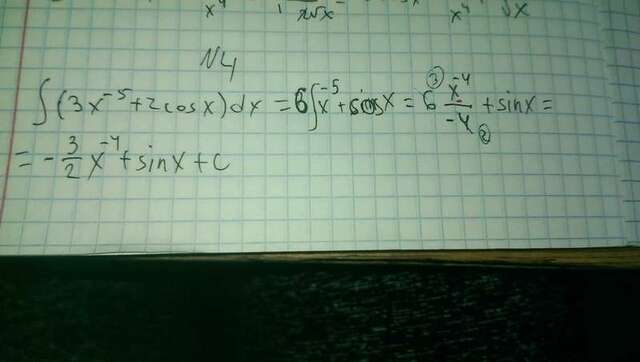 x⁴ 2√x x⁴ √x
N4
∫(3x⁻⁵+2cosx)dx = 6∫x⁻⁵+cosx = 6 x⁻⁴/-4 +sinx =
= -3/2 x⁻⁴+sinx+c